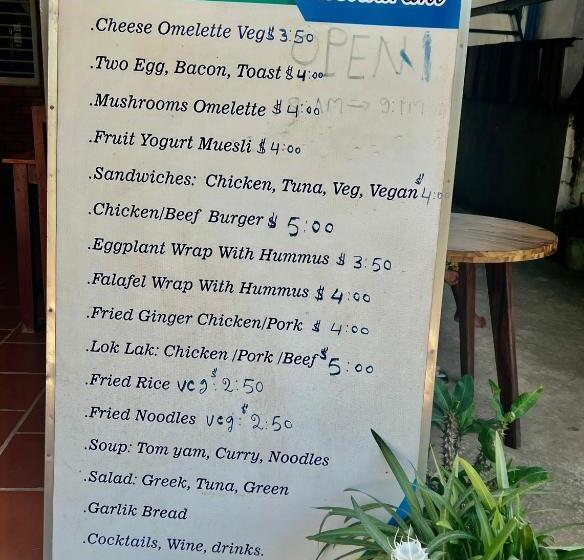 .Cheese Omelette Veg $ 3:50
OPEN
.Two Egg, Bacon, Toast $ 4:00
.Mushrooms Omelette $ 4:00
.Fruit Yogurt Muesli $ 4:00
.Sandwiches: Chicken, Tuna, Veg, Vegan $ 4:00
.Chicken/Beef Burger $ 5:00
.Eggplant Wrap With Hummus $ 3:50
.Falafel Wrap With Hummus $ 4:00
.Fried Ginger Chicken/Pork $ 4:00
.Lok Lak: Chicken /Pork /Beef $ 5:00
.Fried Rice veg: $ 2:50
.Fried Noodles veg: $ 2:50
.Soup: Tom yam, Curry, Noodles
.Salad: Greek, Tuna, Green
.Garlik Bread
.Cocktails, Wine, drinks.